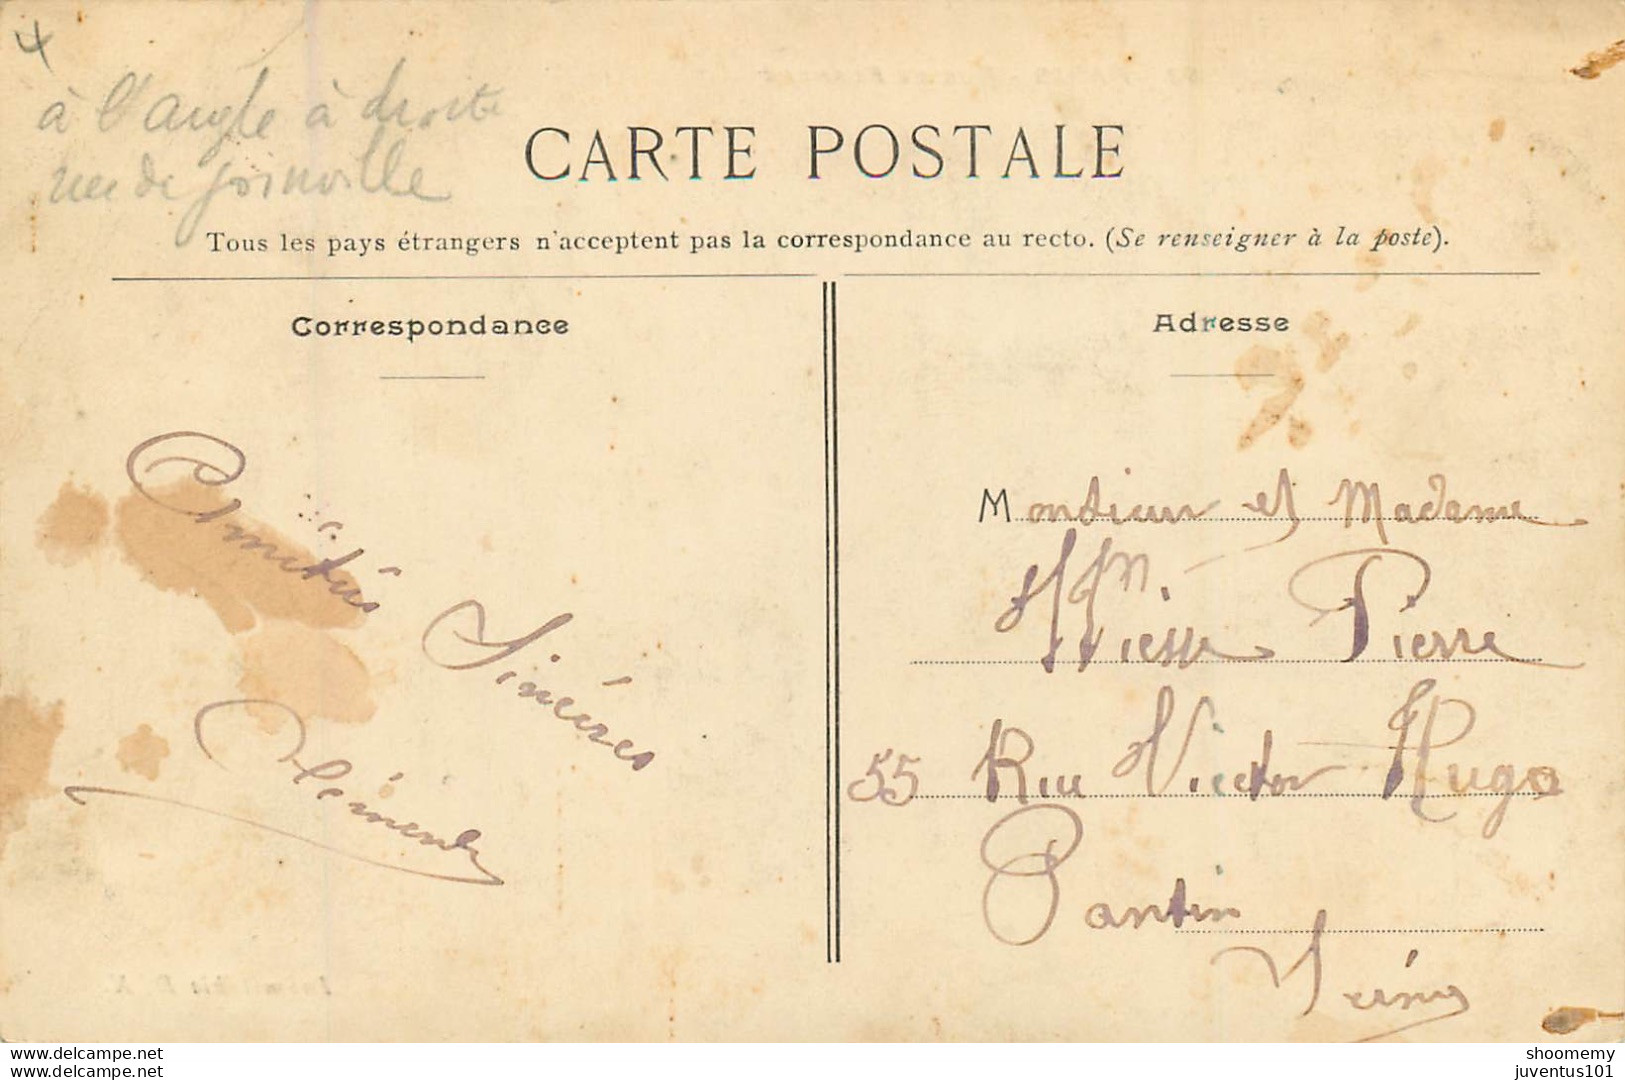 4
à l'angle à droite
rue de Joinville
CARTE POSTALE
Tous les pays étrangers n'acceptent pas la correspondance au recto. (Se renseigner à la poste).
Correspondance
Adresse
Amitiés Sincères
Clémente
Monsieur et Madame
Wiesse Pierre
55 Rue Victor Hugo
Pantin
Seine
www.delcampe.net
www.delcampe.net
shoomemy
juventus101